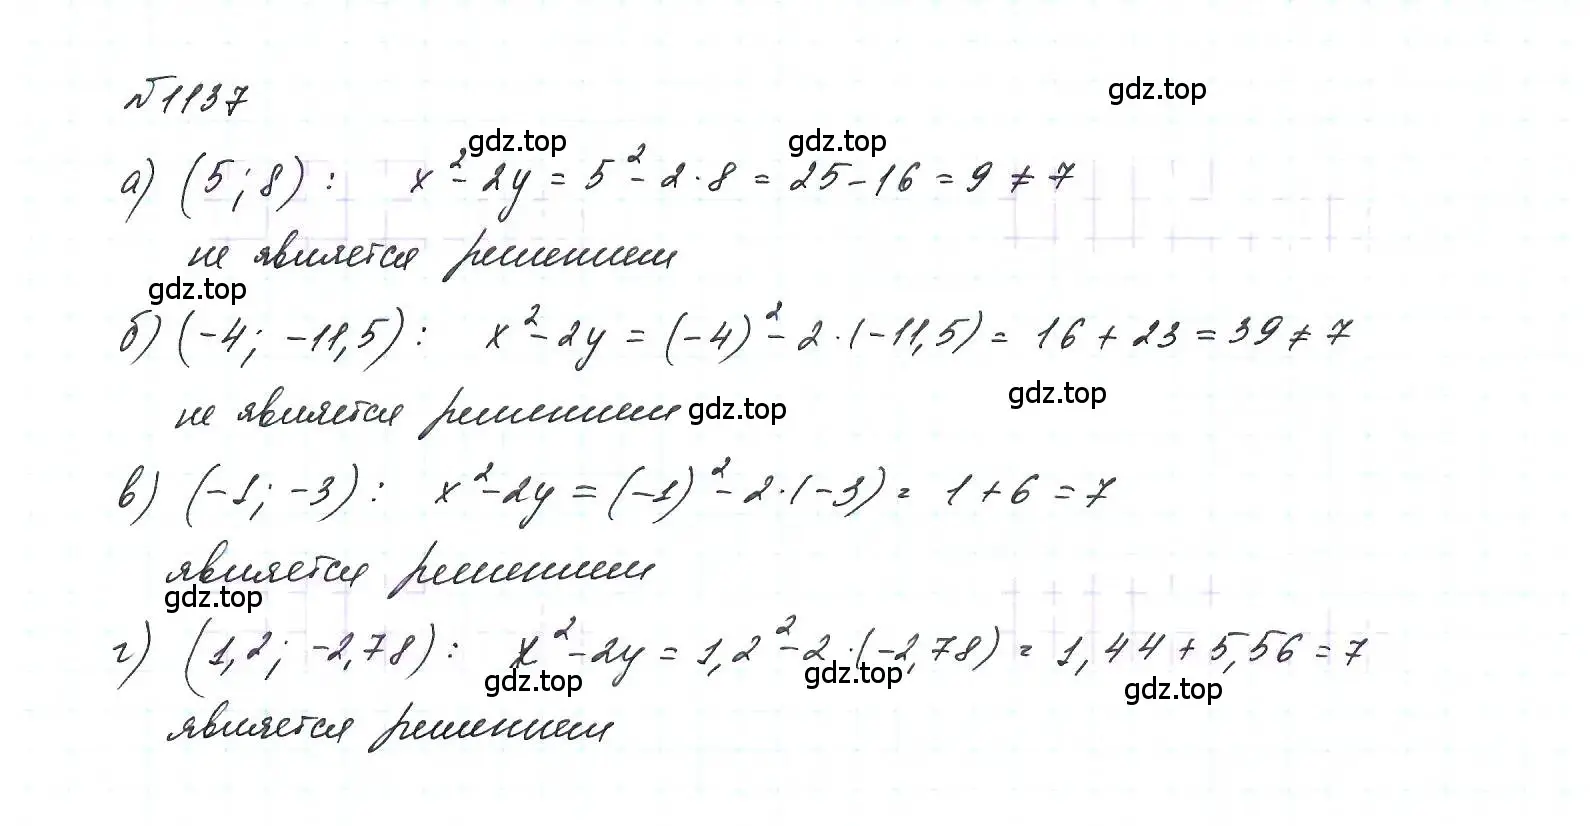 №1137
gdz.top
gdz.top gdz.top
а) (5; 8): x² - 2y = 5² - 2 · 8 = 25 - 16 = 9 ≠ 7
не является решением
gdz.top
б) (-4; -11,5): x² - 2y = (-4)² - 2 · (-11,5) = 16 + 23 = 39 ≠ 7
не является решением gdz.top gdz.top
в) (-1; -3): x² - 2y = (-1)² - 2 · (-3) = 1 + 6 = 7
является решением
gdz.top
г) (1,2; -2,78): x² - 2y = 1,2² - 2 · (-2,78) = 1,44 + 5,56 = 7
gdz.top gdz.top gdz.top
является решением